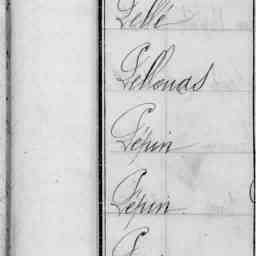 Pellé
Pellouas
Pépin
Pépin